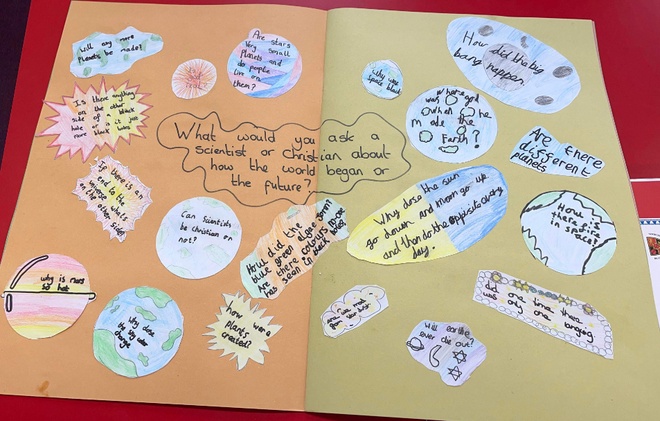 Will any more
planets be made?
Are stars
Very small
planets and
do people
live on
them?
Is there anything
on the other
side of a black
hole or is it just
more black
If there is an
end to the
universe what's
on the other side?
What would you ask a
scientist or christian about
how the world began or
the future?
Can scientists
be christian or
not?
How did the
blue green algae form?
Are there colours no one
has seen in
why is
so hot
Why does
the sky
change
how were
plants
created?
Why is
space black
How did the big
bang happen.
Where
was god
when he
made the
Earth?
Are there
different
planets
Why does the sun
go down and moon go up
and then do the opposite every
day.
How is
there
in space?
did one time there
was any one longing
Will earth
ever die out?